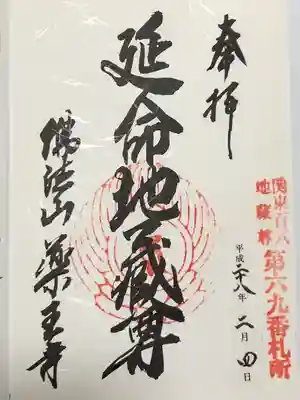 奉拝
関東百八
地蔵尊
第六九番札所
平成二八年二月四日
延命地蔵尊
佛法山 薬王寺